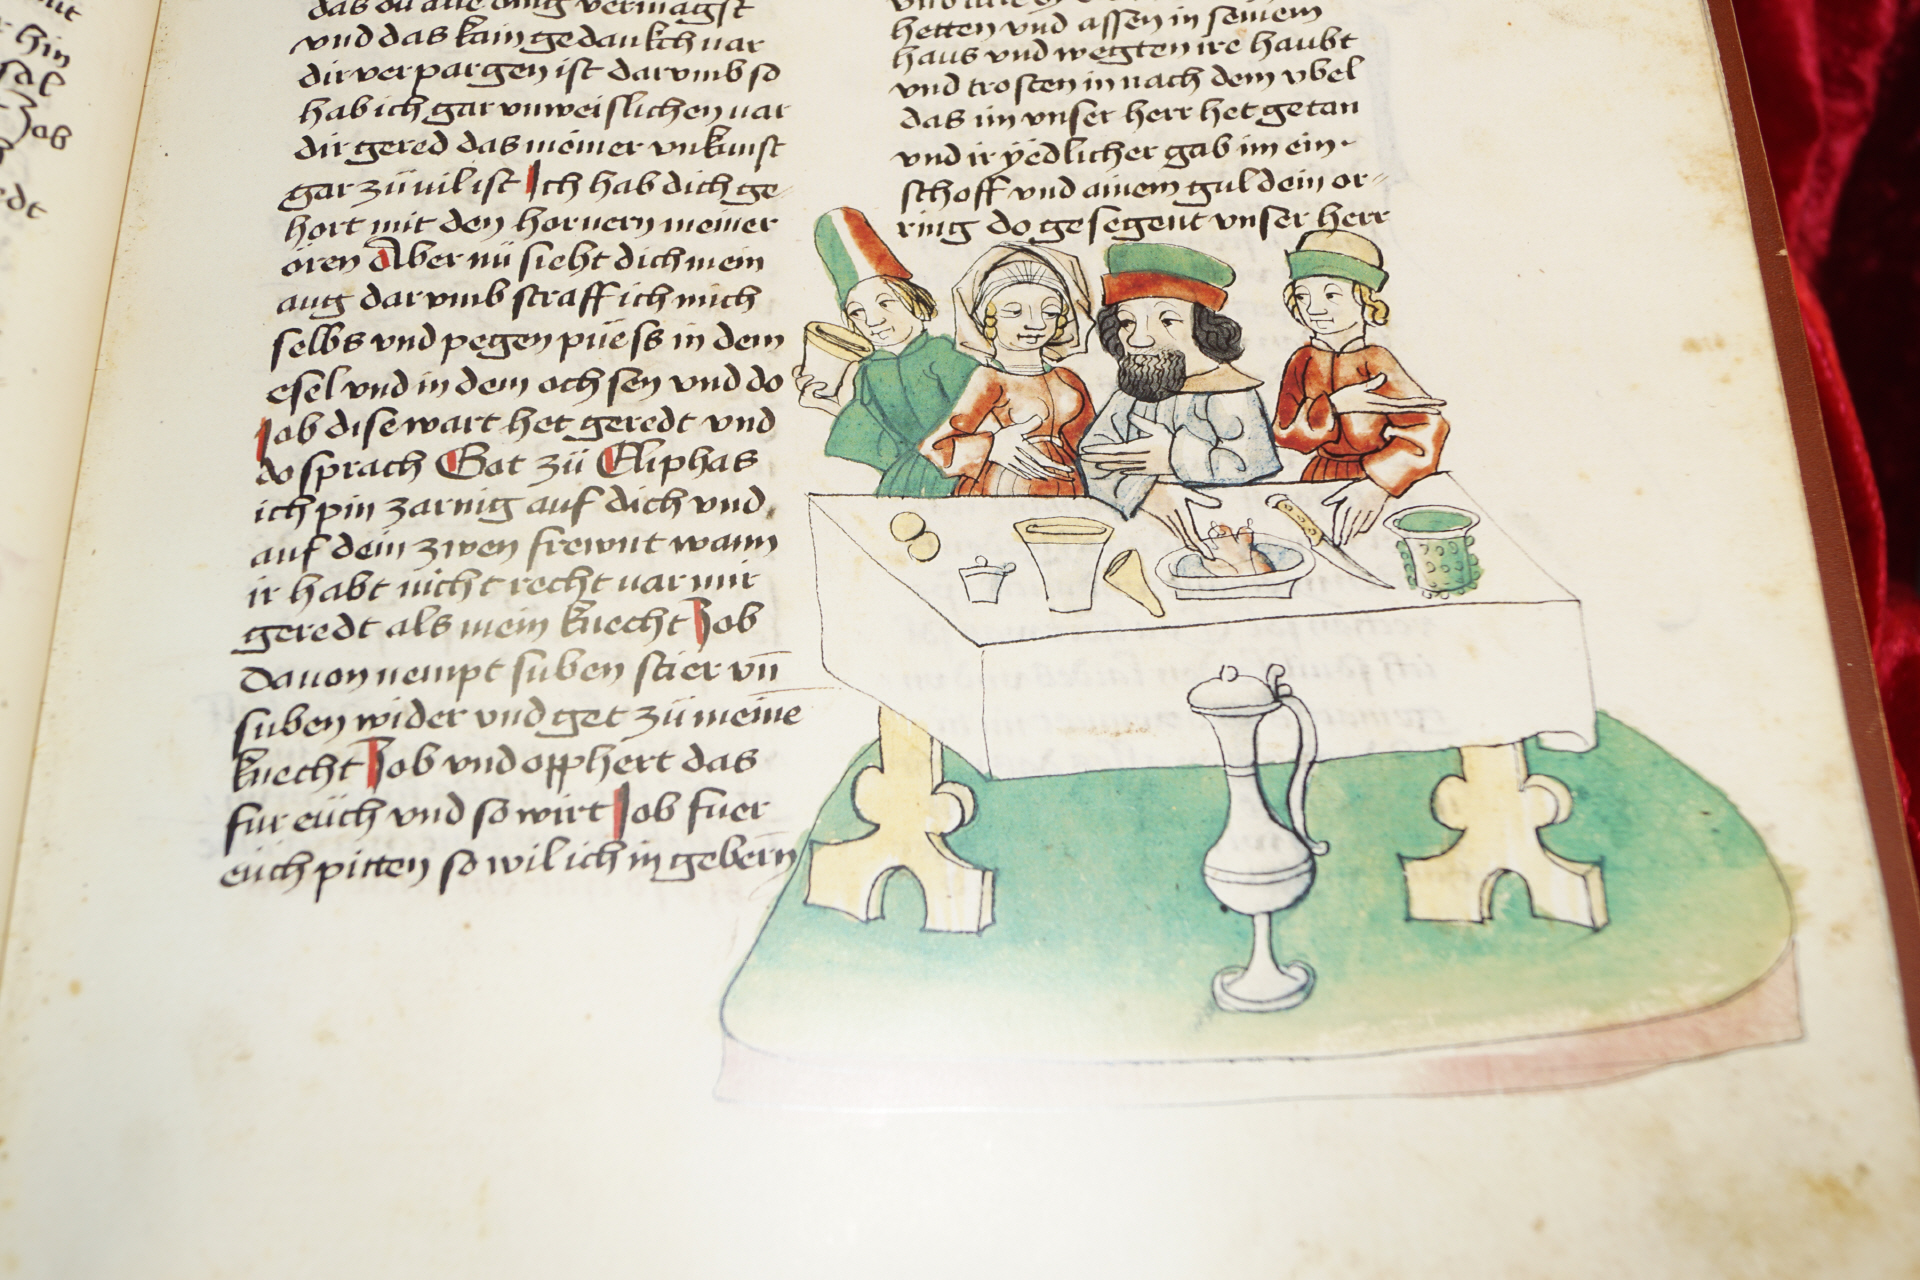 hin
Job
das du alle ding vermagst
vnd das kain gedankch uar
dir verpargen ist darvmb so
hab ich gar vnweislichen uar
dir gered das meiner vnkunst
gar zü uil ist Ich hab dich ge
hort mit den hornern meiner
oren Aber nü sieht dich mein
aug dar vmb straff ich mich
selbs vnd pegen püess in dem
esel vnd in dem ochsen vnd do
Job dise wart het geredt vnd
do sprach Got zü Eliphas
ich pin zarnig auf dich vnd
auf dein zwen frewnt wann
ir habt nicht recht uar mir
geredt als mein knecht Job
dauon nempt suben stier vn̄
suben wider vnd get zü meinē
knecht Job vnd opphert das
fur eüch vnd so wirt Job fuer
eüch pitten so wil ich in gebern̄
hetten vnd assen in seinem
haus vnd wegten ire haubt
vnd trosten in nach dem vbel
das im vnser herr het getan
vnd ir yedlicher gab im ein
schoff vnd ainem guldein or-
ring do gesegent vnser herr